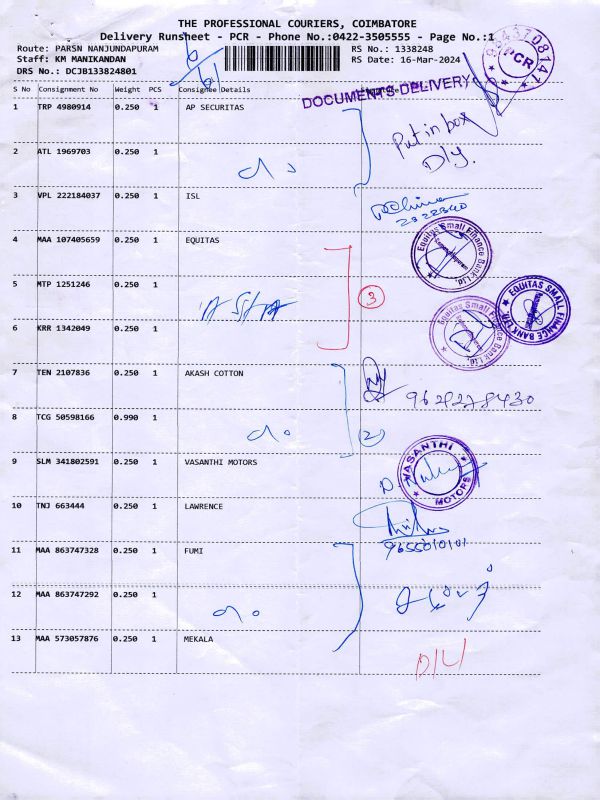 THE PROFESSIONAL COURIERS, COIMBATORE
Delivery Runsheet - PCR - Phone No.:0422-3505555 - Page No.:1
Route: PARSN NANJUNDAPURAM
RS No.: 1338248
Staff: KM MANIKANDAN
RS Date: 16-Mar-2024
DRS No.: DCJB133824801
9843708141
PCR
DOCUMENTS DELIVERY
S No Consignment No Weight PCS Consignee Details
1 TRP 4980914 0.250 1 AP SECURITAS
Put in box
Dly.
2 ATL 1969703 0.250 1
3 VPL 222184037 0.250 1 ISL
2322340
4 MAA 107405659 0.250 1 EQUITAS
Equitas Small Finance Bank Ltd.
5 MTP 1251246 0.250 1
3
EQUITAS SMALL FINANCE BANK LTD.
Equitas Small Finance Bank Ltd.
6 KRR 1342049 0.250 1
7 TEN 2107836 0.250 1 AKASH COTTON
9629278430
8 TCG 50598166 0.990 1
2
9 SLM 341802591 0.250 1 VASANTHI MOTORS
VASANTHI MOTORS
10 TNJ 663444 0.250 1 LAWRENCE
9655010101
11 MAA 863747328 0.250 1 FUMI
12 MAA 863747292 0.250 1
13 MAA 573057876 0.250 1 MEKALA
D/L